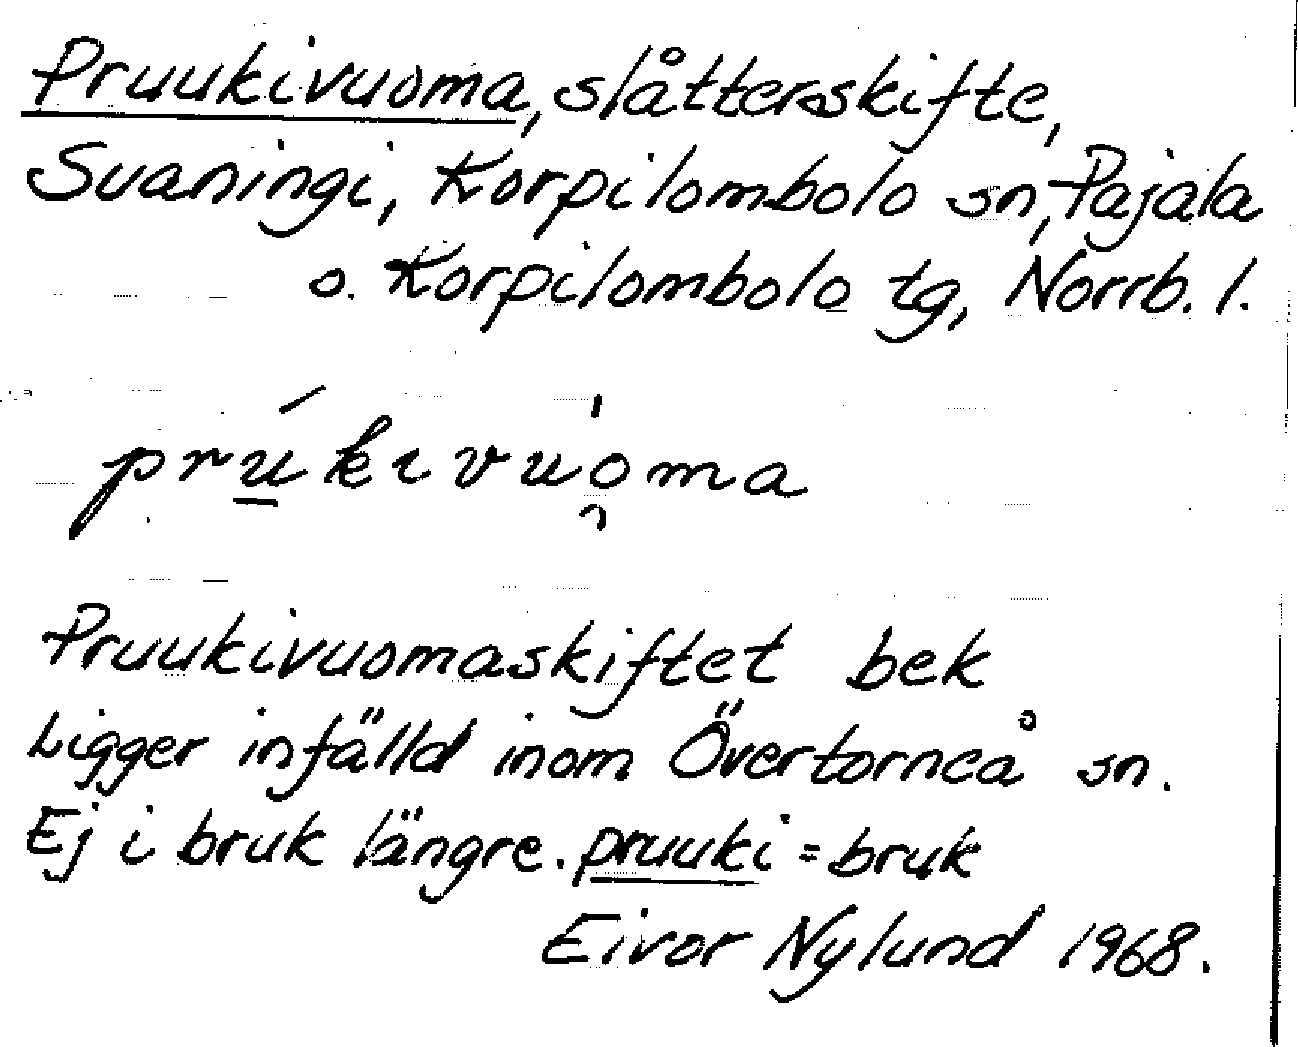 Pruukivuoma, slåtterskifte,
Suaningi, Korpilombolo sn, Pajala
o. Korpilombolo tg, Norrb. l.
prú̱kivuo̯ma
Pruukivuomaskiftet bek
Ligger infälld inom Övertorneå sn.
Ej i bruk längre. pruuki = bruk
Eivor Nylund 1968.